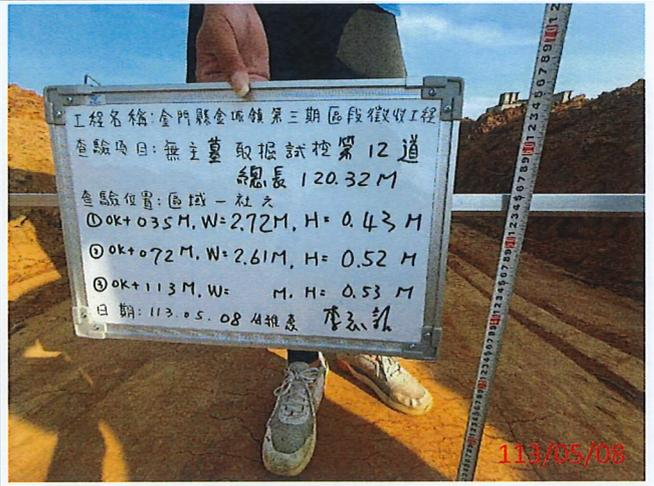 工程名稱:金門縣金城鎮第三期區段徵收工程
查驗項目:無主墓 取掘試挖第12道
總長 120.32M
查驗位置:區域一社
①0K+035M, W=2.72M, H= 0.43 M
②0K+072M, W=2.61M, H= 0.52 M
③0K+113M, W= M, H= 0.53 M
日期:113.05.08
113/05/08